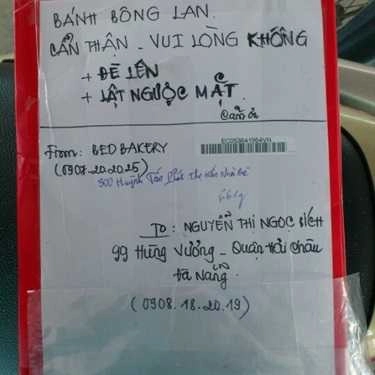 BÁNH BÔNG LAN.
CẨN THẬN - VUI LÒNG KHÔNG
+ ĐÈ LÊN
+ LẬT NGƯỢC MẶT.
Cảm ơn
From: BED BAKERY
(0907.20.2025)
500 Huỳnh Tấn Phát Thị trấn Nhà Bè
TO: NGUYỄN THỊ NGỌC BÍCH
99 Hùng Vương - Quận Hải Châu
Đà Nẵng
(0908.18.20.19)